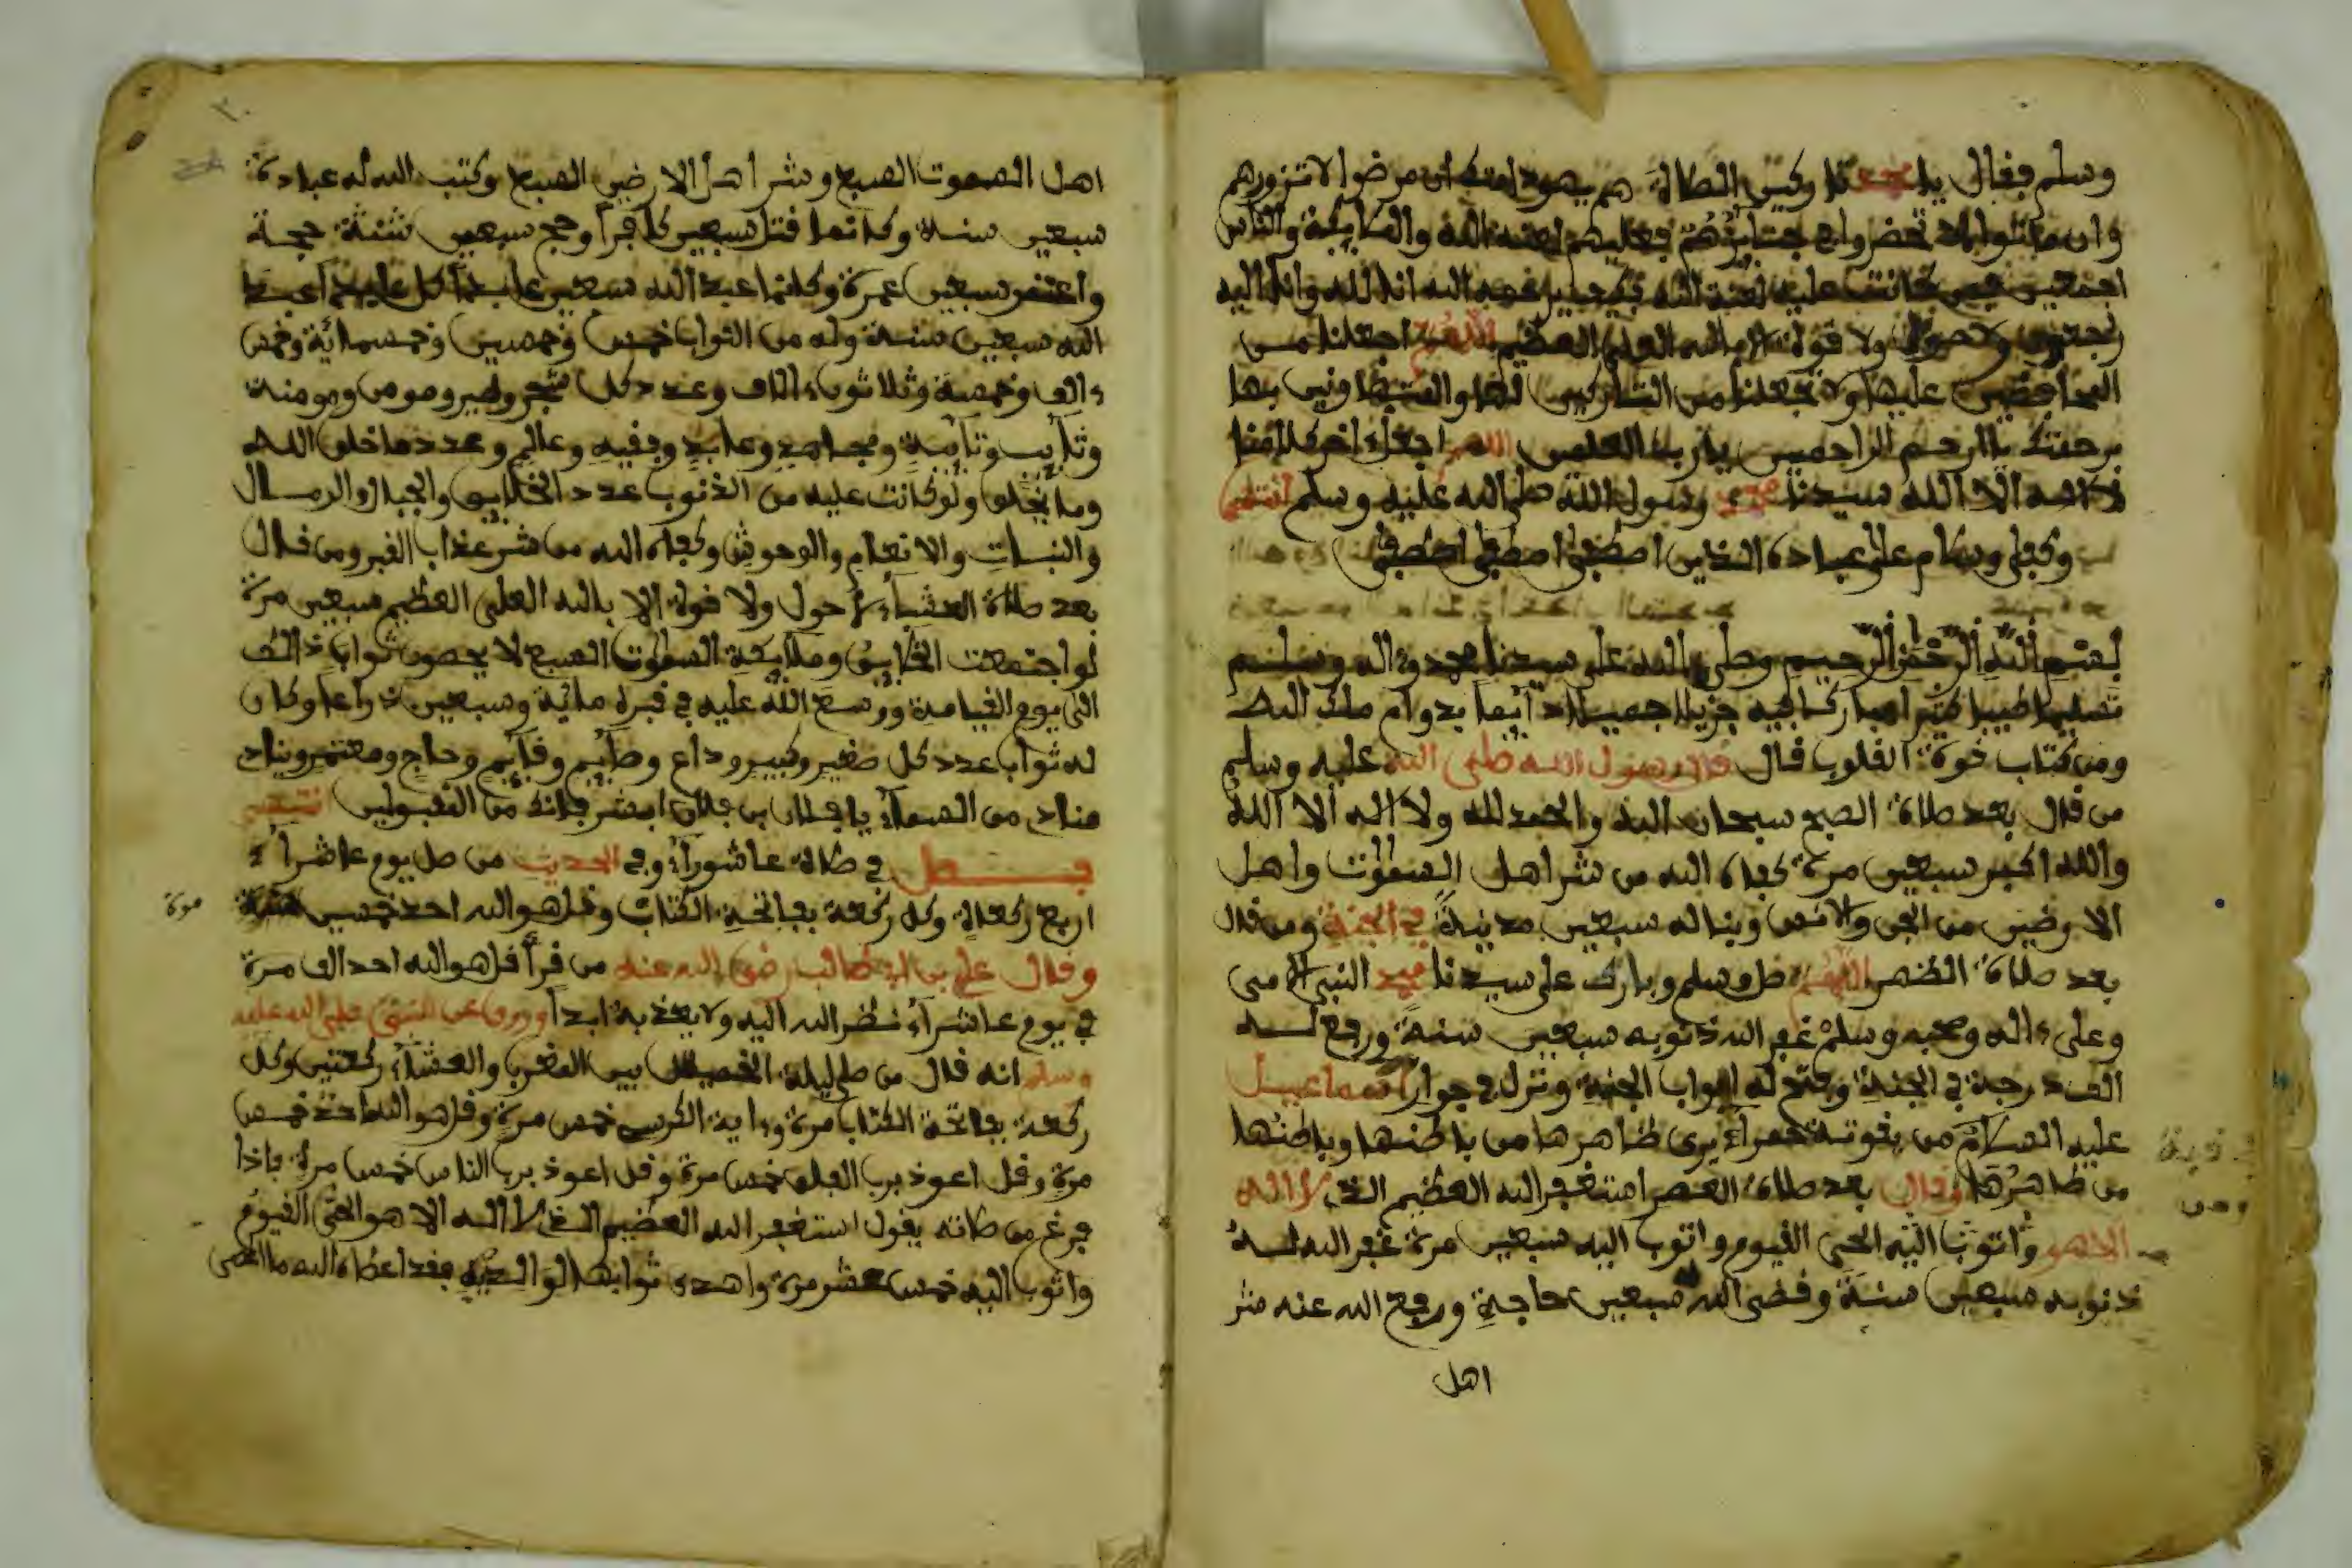 وسلم فقال يا محمد تاركين الصلاة هم يهود امتك ان مرضوا لا تزورهم
وان ماتوا لا تحضروا في جنايزهم فعليهم لعنة الله والملايكة والناس
اجمعين فمن كانت عليه لعنة الله فكيف يرحمه الله انا لله وانا اليه
راجعون ولا حول ولا قوة الا بالله العلي العظيم اللهم اجعلنا من
المحافظين عليها ولا تجعلنا من التاركين لها والمتهاونين بها
برحمتك يا ارحم الراحمين يا رب العلمين اللهم اجعل اخر كلامنا
لا اله الا الله سيدنا محمد رسول الله صلى الله عليه وسلم انتهى
وكفى وسلام على عباده الذين اصطفى اصطفى اصطفى
بسم الله الرحمن الرحيم وصلى الله على سيدنا محمد وءاله وسلم
تسليما طيبا كثيرا مباركا فيه جزيلا جميلا دايما بدوام ملك الله
ومن كتاب قوة القلوب قال قال رسول الله صلى الله عليه وسلم
من قال بعد صلاة الصبح سبحان الله والحمد لله ولا اله الا الله
والله اكبر سبعين مرة كفاه الله من شر اهل السموات واهل
الارضين من الجن والانس وبنا له سبعين مدينة في الجنة ومن قال
بعد صلاة الظهر اللهم صل وسلم وبارك على سيدنا محمد النبي الامي
وعلى ءاله وصحبه وسلم غفر الله ذنوبه سبعين سنة ورفع لـه
الف درجة في الجنة وفتح له ابواب الجنة ونزل في جوار اسماعيل
عليه السلام من يقوتة حمراء يرى ظاهرها من باطنها وباطنها
من ظاهرها وقال بعد صلاة العصر استغفر الله العظيم الذي لا اله
الا هو واتوب اليه الحي القيوم واتوب اليه سبعين مرة غفر الله لـه
ذنوبه سبعين سنة وقضى الله سبعين حاجة ورفع الله عنه شر
اهل
اهل السموت السبع وشر اهل الارضين السبع وكتب الله له عبادة
سبعين سنة وكانما قتل سبعين كافرا وحج سبعين سنة حجة
واعتمر سبعين عمرة وكانما عبد الله سبعين عابدا كل عابد عبد
الله سبعين سنة وله من الثواب خمس وخمسين وخمسمائة وخمس
ءالف وخمسة وثلاثون ءالاف وعدد كل شجر وطير ومومن ومومنة
وتايب وتايبة ومجاهد وعابد وفقيه وعالم وعدد ما خلق الله
وما يخلق ولو كانت عليه من الذنوب عدد الخلايق والجبال والرمال
والنبات والانعام والوحوش وكفاه الله من شر عذاب القبر ومن قال
بعد صلاة العشاء لا حول ولا قوة الا بالله العلي العظيم سبعين مرة
لو اجتمعت الخلايق وملايكة السموات السبع لا يحصون ثواب ذالك
الى يوم القيامة ووسع الله عليه في قبره مائة وسبعين ذراعا وكان
له ثواب عدد كل صغير وكبير وداع وصايم وقايم وحاج ومعتمر وينادي
مناد من السماء يا فلان بن فلان ابشر فانك من المقبولين انتهى
فصل في صلاة عاشوراء وفي الحديث من صلى يوم عاشراء
اربع ركعات وكل ركعة بفاتحة الكتاب وقل هو الله احد خمسين
مرة
وقال علي بن ابي طالب رضي الله عنه من قرأ قل هو الله احد الف مرة
في يوم عاشراء نظر الله اليه ولا يعذبه ابدا وروي عن النبي صلى الله عليه
وسلم انه قال من صلى ليلة الخميس بين المغرب والعشاء ركعتين وكل
ركعة بفاتحة الكتاب مرة وءاية الكرسي خمس مرة وقل هو الله احد خمس
مرة وقل اعوذ برب الفلق خمس مرة وقل اعوذ برب الناس خمس مرة فاذا
فرغ من صلاته يقول استغفر الله العظيم الذي لا اله الا هو الحي القيوم
واتوب اليه خمس عشر مرة واهدى ثوابها لوالديه فقد اعطاه الله ما اعطى